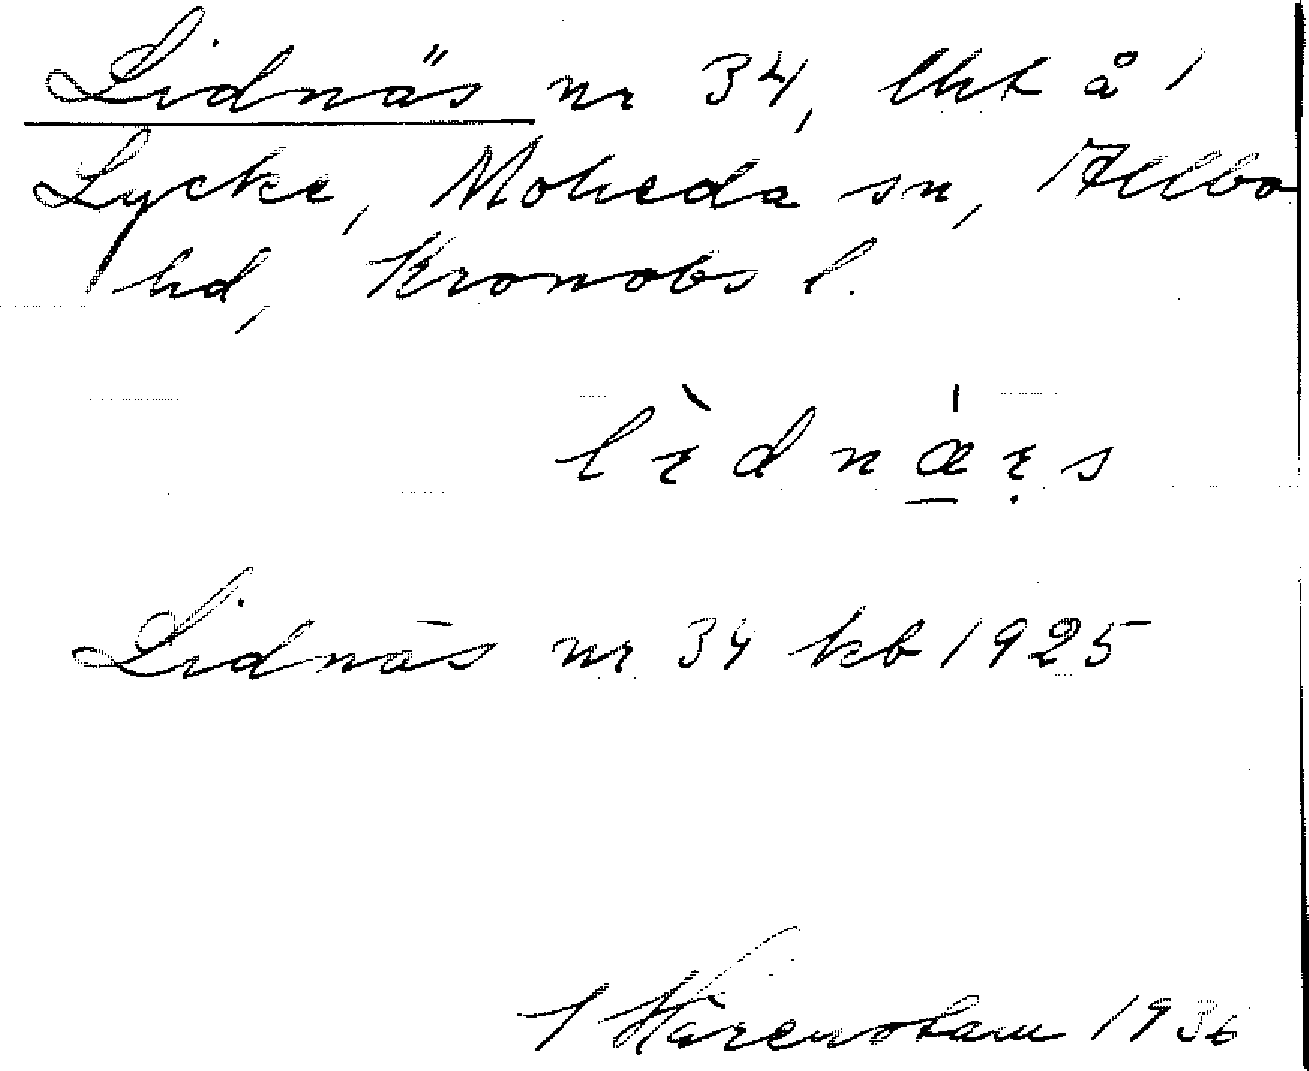 Lidnäs nr 34, lht å 1
Lycke, Moheda sn, Allbo
hd, Kronobs l.
lìdnæ̠ıs
Lidnäs nr 34 kb 1925
1936